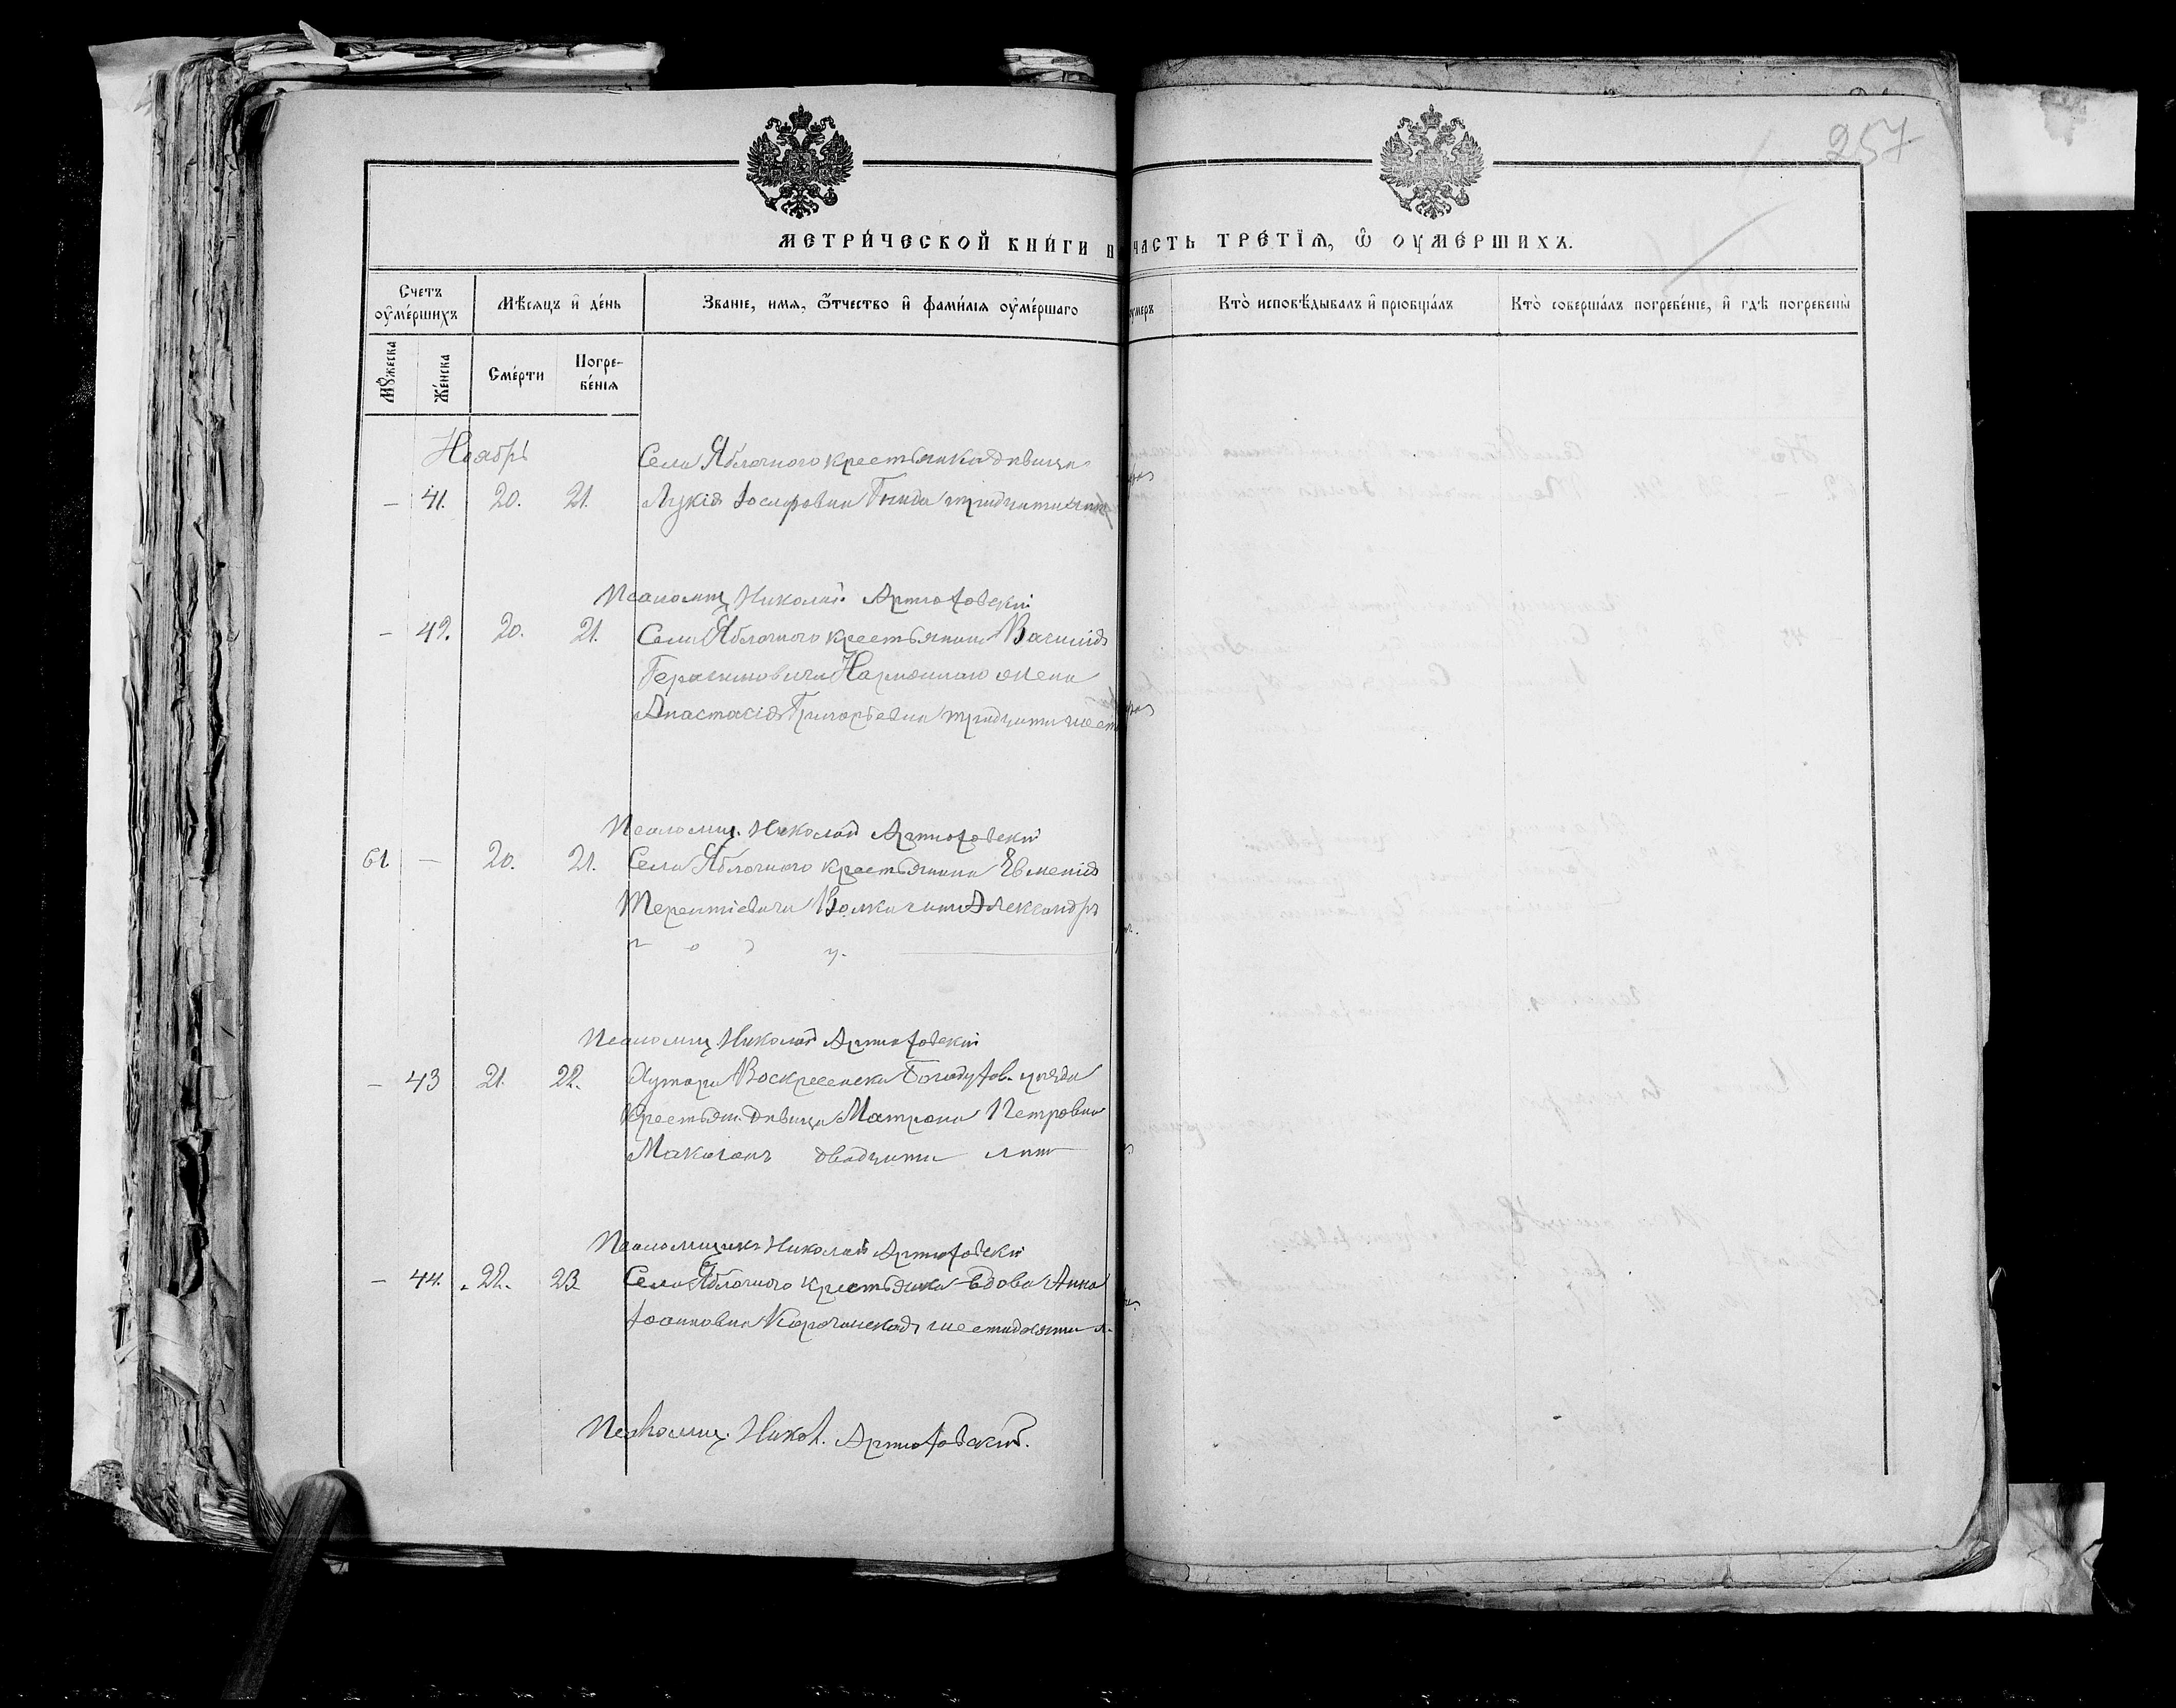 257
МЕТРИ́ЧЕСКОЙ КНИ́ГИ
ЧАСТЬ ТРЕ́ТЇѦ, Ѿ ОУМЕ́РШИХЪ.
Счетъ оуме́ршихъ
Мѣсяцъ и де́нь
Званіе, имя, ѿтчество и фами́лія оуме́ршаго
оумеръ
Кто̀ исповѣ́дывалъ и пріобща́лъ
Кто̀ соверша́лъ погребе́ніе, и гдѣ̀ погребены̀
Мужеска
Же́нска
Сме́рти
Погре-
бе́нія
Ноябрь
Села Яблочного крестьянка девица
— 41. 20. 21. Лукія Іосифовна Гнида тридцати
Псаломщ. Николай Артюховскій
— 42. 20. 21. Села Яблочного крестьянина Василія
Герасимовича жена
Анастасія Григорьевна тридцати шест
Псаломщ. Николай Артюховскій
61. — 20. 21. Села Яблочного крестьянина Евменія
Терентіевича сынъ Александръ
г о д у.
Псаломщ. Николай Артюховскій
— 43 21. 22. Хутора Воскресенска Богодухов. уезда
крестьян. девица Матрона Петровна
двадцати лет
Псаломщикъ Николай Артюховскій
— 44. 22. 23. Села Яблочного крестьянка вдова Анна
Іоанновна шестидесяти л.
Псаломщ. Никол. Артюховскій.